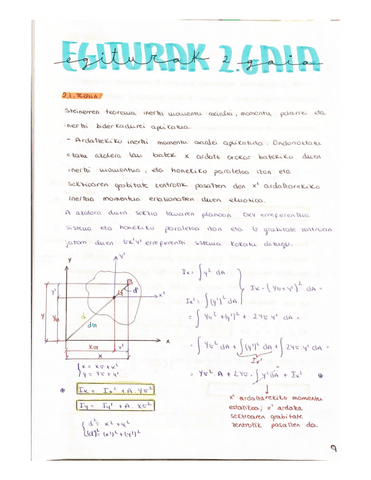 EGITURAK 2.GAIA
egiturak 2 gaia
Steinerren teorema inertzi momentu axialei, momentu polarrei eta
inertzi biderkadurei aplikatua.
- Ardatzekiko inertzi momentu axialei aplikatuta: Ondorioztatu
azalera lau batek x ardatz batekiko duen
inertzi momentua, eta honekiko paraleloa izan eta
sekzioaren grabitate zentrotik pasatzen den x' ardatzarekiko
inertzia momentua erlazionatzen duen ekuazioa.
A azalera duen sekzio lauaren planoan Oxy erreferentzia
sistema eta honekiko paraleloa izan eta G grabitate zentroan
jatorria duen Gx'y' erreferentzi sistema kokatu ditugu.
y
y'
x'
x
d'
d
y'
y
x'
x
Ix = ∫y² dA
Ix' = ∫(y')² dA
Ix = ∫(YG+y')² dA =
= ∫YG² + (y')² + 2YG y' dA =
= ∫YG² dA + ∫(y')² dA + ∫2YG y' dA
Ix'
= YG² A + 2YG · ∫y' dA + Ix'
{x = XG + x'
{y = YG + y'
Ix = Ix' + A · YG²
Iy = Iy' + A · XG²
x' ardatzarekiko momentu
estatikoa; x' ardatza
sekzioaren grabitate
zentrotik pasatzen da.